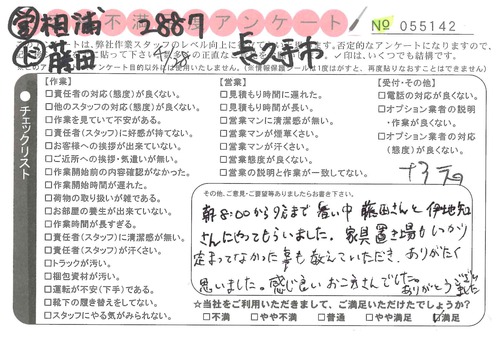 営 相浦 2887
不満足アンケート
№ 055142
作 藤田 長久手市
チェックリスト
【作業】
□責任者の対応(態度)が良くない。
□他のスタッフの対応(態度)が良くない。
□作業を見ていて不安がある。
□責任者(スタッフ)に好感が持てない。
□お客様への挨拶が出来ていない。
□ご近所への挨拶・気遣いが無い。
□作業開始前の内容確認がなかった。
□作業開始時間が遅れた。
□荷物の取り扱いが雑である。
□お部屋の養生が出来ていない。
□作業時間が長すぎる。
□責任者(スタッフ)に清潔感が無い。
□責任者(スタッフ)が汗くさい。
□トラックが汚い。
□梱包資材が汚い。
□運転が不安(下手)である。
□靴下の履き替えをしてない。
□スタッフにやる気がみられない。
【営業】
□見積もり時間に遅れた。
□見積もり時間が長い。
□営業マンに清潔感が無い。
□営業マンが煙草くさい。
□営業マンが汗くさい。
□営業態度が良くない。
□営業の説明と作業が一致してない。
【受付・その他】
□電話の対応が良くない。
□オプション業者の説明
・作業が良くない。
□オプション業者の対応
(態度)が良くない。
その他、ご意見・ご要望等ありましたらお書き下さい。
朝8:00から9時まで暑い中 藤田さんと伊地知
さんにやってもらいました。家具置き場もしっかり
定まってなかった事も教えていただき、ありがたく
思いました。感じ良いお二方さんでした。
ありがとうございました
☆当社をご利用いただきまして、ご満足いただけたでしょうか?
□不満 □やや不満 □普通 □やや満足 ☑満足